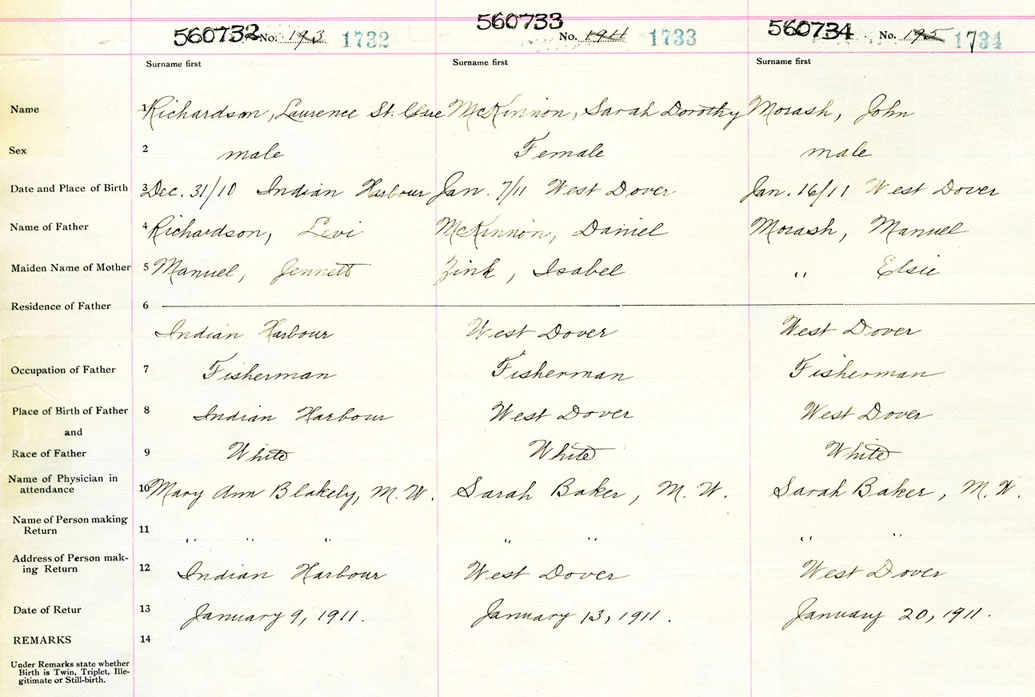 560732 No. 193 1732 560733 No. 194 1733 560734 No. 195 1734
Surname first Surname first Surname first
Name 1 Richardson, Laurence St. McKinnon, Sarah Dorothy Morash, John
Sex 2 male Female male
Date and Place of Birth 3 Dec. 31/10 Indian Harbour Jan. 7/11 West Dover Jan. 16/11 West Dover
Name of Father 4 Richardson, Levi McKinnon, Daniel Morash, Manuel
Maiden Name of Mother 5 Manuel, Jennett Zink, Isabel " Elsie
Residence of Father 6
Indian Harbour West Dover West Dover
Occupation of Father 7 Fisherman Fisherman Fisherman
Place of Birth of Father 8 Indian Harbour West Dover West Dover
and
Race of Father 9 White White White
Name of Physician in
attendance 10 Mary Ann Blakely, M.W. Sarah Baker, M.W. Sarah Baker, M.W.
Name of Person making
Return 11 " " " " " " "
Address of Person mak-
ing Return 12 Indian Harbour West Dover West Dover
Date of Retur 13 January 9, 1911. January 13, 1911. January 20, 1911.
REMARKS 14
Under Remarks state whether
Birth is Twin, Triplet, Ille-
gitimate or Still-birth.